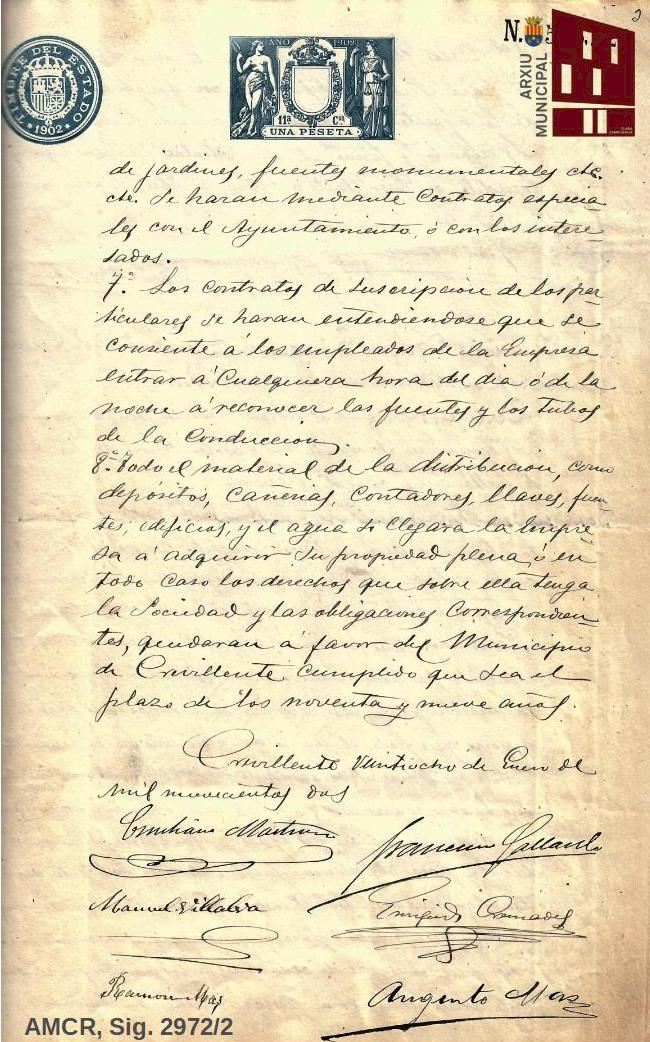 TIMBRE DEL ESTADO
* 1902 *
AÑO 1902
11ª Cse.
UNA PESETA
N.
ARXIU
MUNICIPAL
de jardines, fuentes monumentales etc.
etc. se haran mediante Contratos especia-
les con el Ayuntamiento ó con los intere-
sados.
7ª. Los contratos de suscripcion de los par-
ticulares se haran entendiendose que se
consiente á los empleados de la Empresa
entrar á cualquiera hora del dia ó de la
noche á reconocer las fuentes y los tubos
de la Conduccion.
8ª. Todo el material de la distribucion, como
depósitos, cañerias, contadores, llaves, fuen-
tes, edificios, y el agua si llegara la Empre-
sa á adquirir su propiedad plena, ó en
todo caso los derechos que sobre ella tenga
la Sociedad y las obligaciones correspondien-
tes, quedaran á favor del Municipio
de Crevillente cumplido que sea el
plazo de los noventa y nueve años.
Crevillente veintiocho de Enero de
mil novecientos dos
Emiliano Martinez
Francisco Gallardo
Manuel Villalva
Cremades
Ramon Mas
Augusto Mas
AMCR, Sig. 2972/2